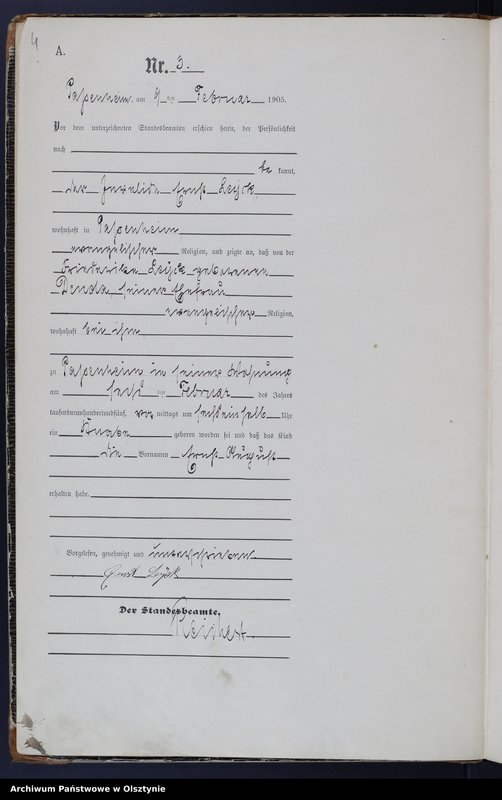 4
A.
Nr. 3.
Passenheim, am 9 ten Februar 1905.
Vor dem unterzeichneten Standesbeamten erschien heute, der Persönlichkeit
nach
be kannt,
der Invalide Ernst Leysk,
wohnhaft in Passenheim,
evangelischer Religion, und zeigte an, daß von der
Friederike Leysk geborenen
Denda seiner Ehefrau
evangelischer Religion,
wohnhaft bei ihm,
zu Passenheim in seiner Wohnung
am sechs ten Februar des Jahres
tausendneunhundertundfünf, vor mittags um sechseinhalb Uhr
ein Knabe geboren worden sei und daß das Kind
die Vornamen Ernst August
erhalten habe.
Vorgelesen, genehmigt und unterschrieben
Ernst Leysk
Der Standesbeamte.
Archiwum Państwowe w Olsztynie